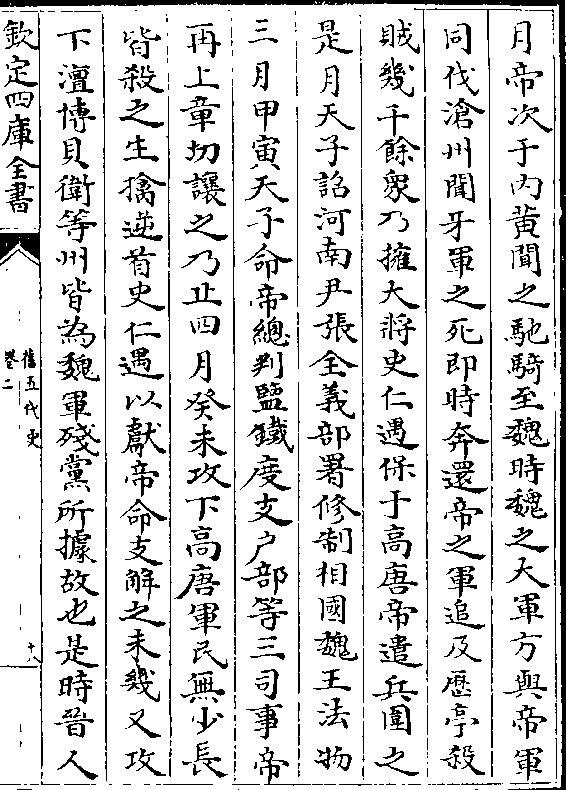 月帝次于内黄聞之馳騎至魏時魏之大軍方與帝軍
同伐滄州聞牙軍之死即時奔還帝之軍追及歷亭殺
賊幾千餘衆乃擁大將史仁遇保于高唐帝遣兵圍之
是月天子詔河南尹張全義部署修制相國魏王法物
三月甲寅天子命帝總判鹽鐵度支户部等三司事帝
再上章切讓之乃止四月癸未攻下高唐軍民無少長
皆殺之生擒逆首史仁遇以獻帝命支解之未幾又攻
下澶博貝衛等州皆為魏軍殘黨所據故也是時晉人
欽定四庫全書
舊五代史
卷二
十八